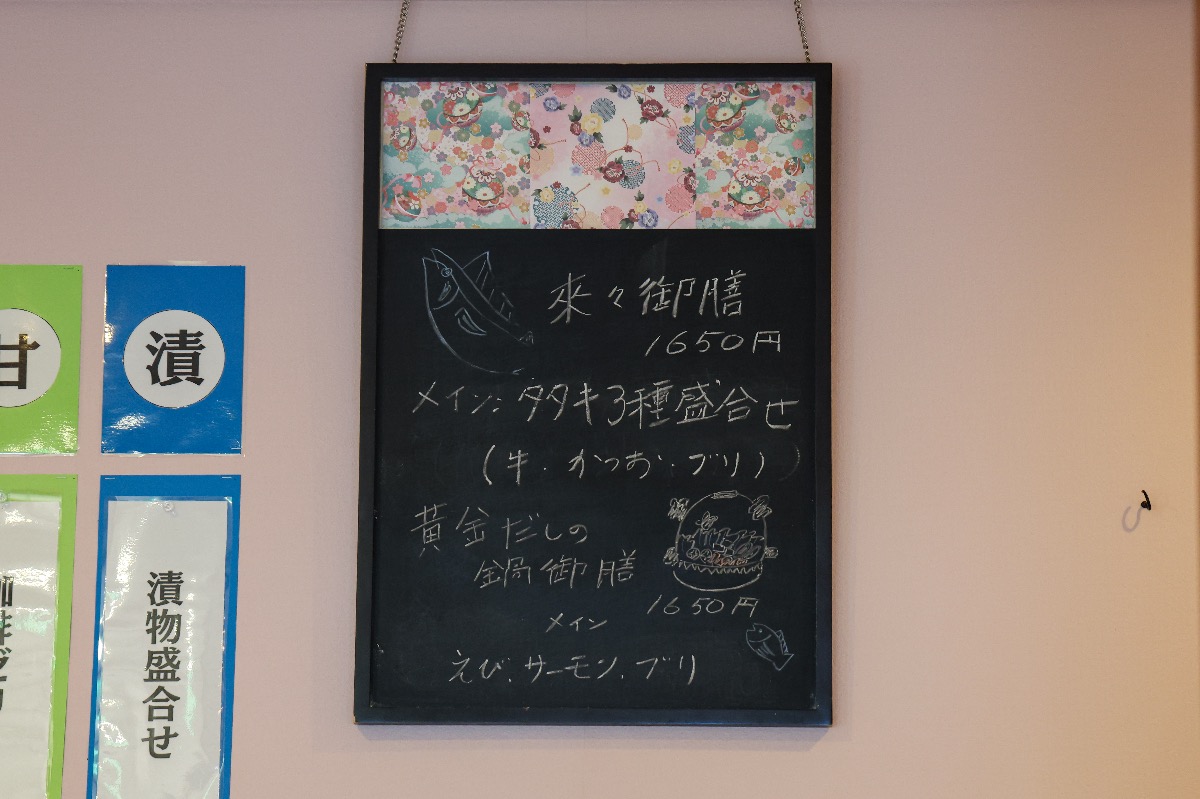 來々御膳
1650円
メイン:タタキ3種盛合せ
(牛・かつお・ブリ)
黄金だしの
鍋御膳
1650円
メイン
えび、サーモン、ブリ
甘
漬
漬物盛合せ